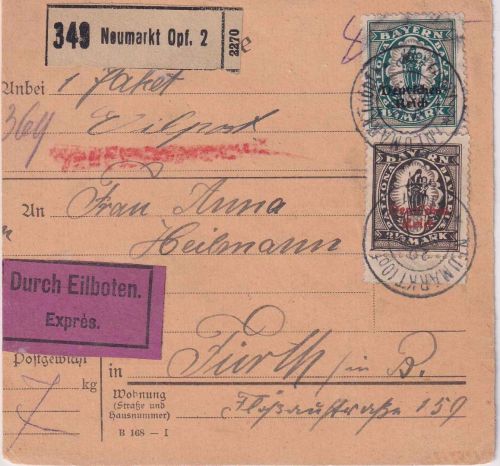 349 Neumarkt Opf. 2
2270
e
Anbei 1 Paket
364
Eilpost
BAYERN
Deutsches
Reich
MARK
An Frau Anna
Heilmann
BAYERN
PATRONA BAVARIAE
MARK
NEUMARKT (OPF
Durch Eilboten.
Exprès.
Postgewicht
7 kg
in Fürth in B.
Wohnung
(Straße und
Hausnummer)
Floßaustraße 159
B 168 — I